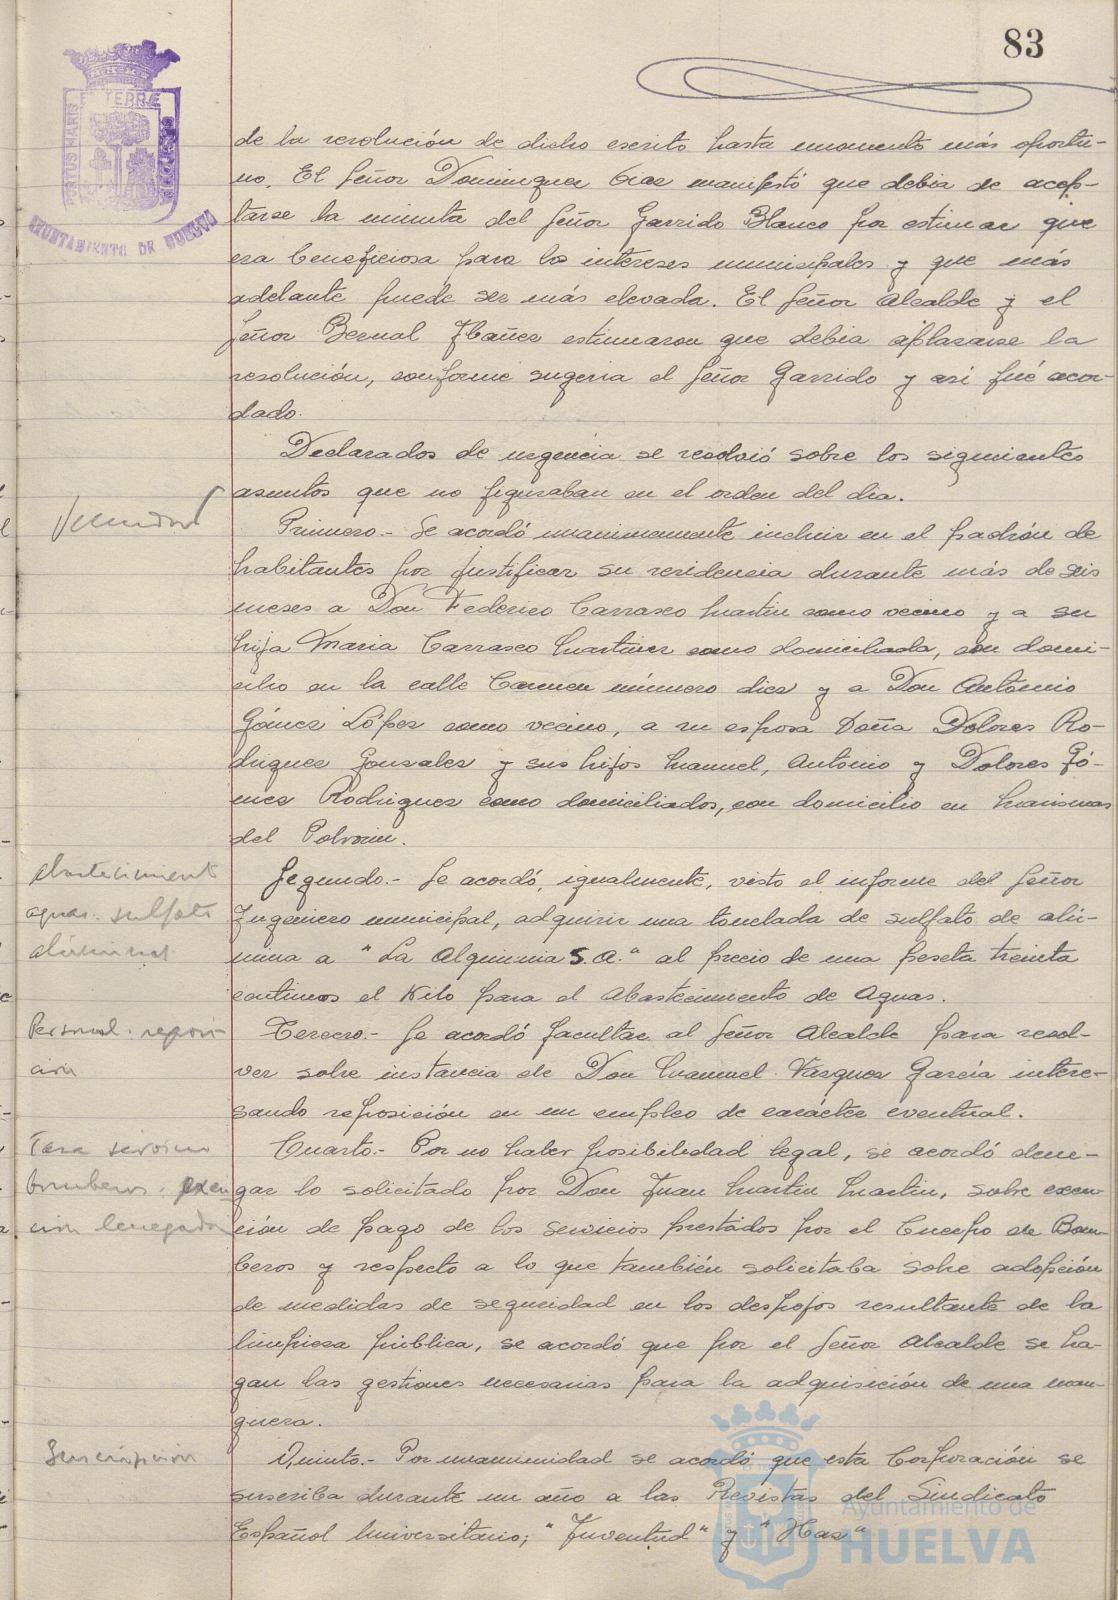 83
PORTUS MARIS
ET TERRÆ
CUSTODIA
AYUNTAMIENTO DE HUELVA
de la resolución de dicho escrito hasta momento más oportu-
no. El Señor Dominguez manifestó que debia de acep-
tarse la minuta del Señor Garrido Blanco por estimar que
era beneficiosa para los intereses municipales y que más
adelante puede ser más elevada. El Señor Alcalde y el
Señor Bernal Ibañez estimaron que debia aplazarse la
resolución, conforme sugeria el Señor Garrido y asi fué acor-
dado.
Declarados de urgencia se resolvió sobre los siguientes
asuntos que no figuraban en el orden del dia.
Vecindad
Primero.- Se acordó unanimamente incluir en el padrón de
habitantes por justificar su residencia durante más de seis
meses a Don Federico Carrasco Martin como vecino y a su
hija Maria Carrasco Martinez como domiciliada, con domi-
cilio en la calle Carmen número diez y a Don Antonio
Gómez López como vecino, a su esposa Doña Dolores Ro-
driguez Gonzalez y sus hijos Manuel, Antonio y Dolores Gó-
mez Rodriguez como domiciliados, con domicilio en Marismas
del Polvorin.
Abastecimiento
aguas. sulfato
alúmina
Segundo.- Se acordó, igualmente, visto el informe del Señor
Ingeniero municipal, adquirir una tonelada de sulfato de alú-
mina a "La Alquimia S.A." al precio de una peseta treinta
centimos el Kilo para el Abastecimiento de Aguas.
Personal. reposi-
ción
Tercero.- Se acordó facultar al Señor Alcalde para resol-
ver sobre instancia de Don Manuel Vazquez Garcia intere-
sando reposición en un empleo de carácter eventual.
Tasa servicio
bomberos. exen
ción denegada
Cuarto.- Por no haber posibilidad legal, se acordó dene-
gar lo solicitado por Don Juan Martin Martin, sobre exen-
ción de pago de los servicios prestados por el Cuerpo de Bom-
beros y respecto a lo que también solicitaba sobre adopción
de medidas de seguridad en los despojos resultante de la
limpieza pública, se acordó que por el Señor Alcalde se ha-
gan las gestiones necesarias para la adquisición de una man-
guera.
Suscripción
Quinto.- Por unanimidad se acordó que esta Corporación se
suscriba durante un año a las Revistas del Sindicato
Español Universitario; "Juventud" y "Haz"
Ayuntamiento de
HUELVA